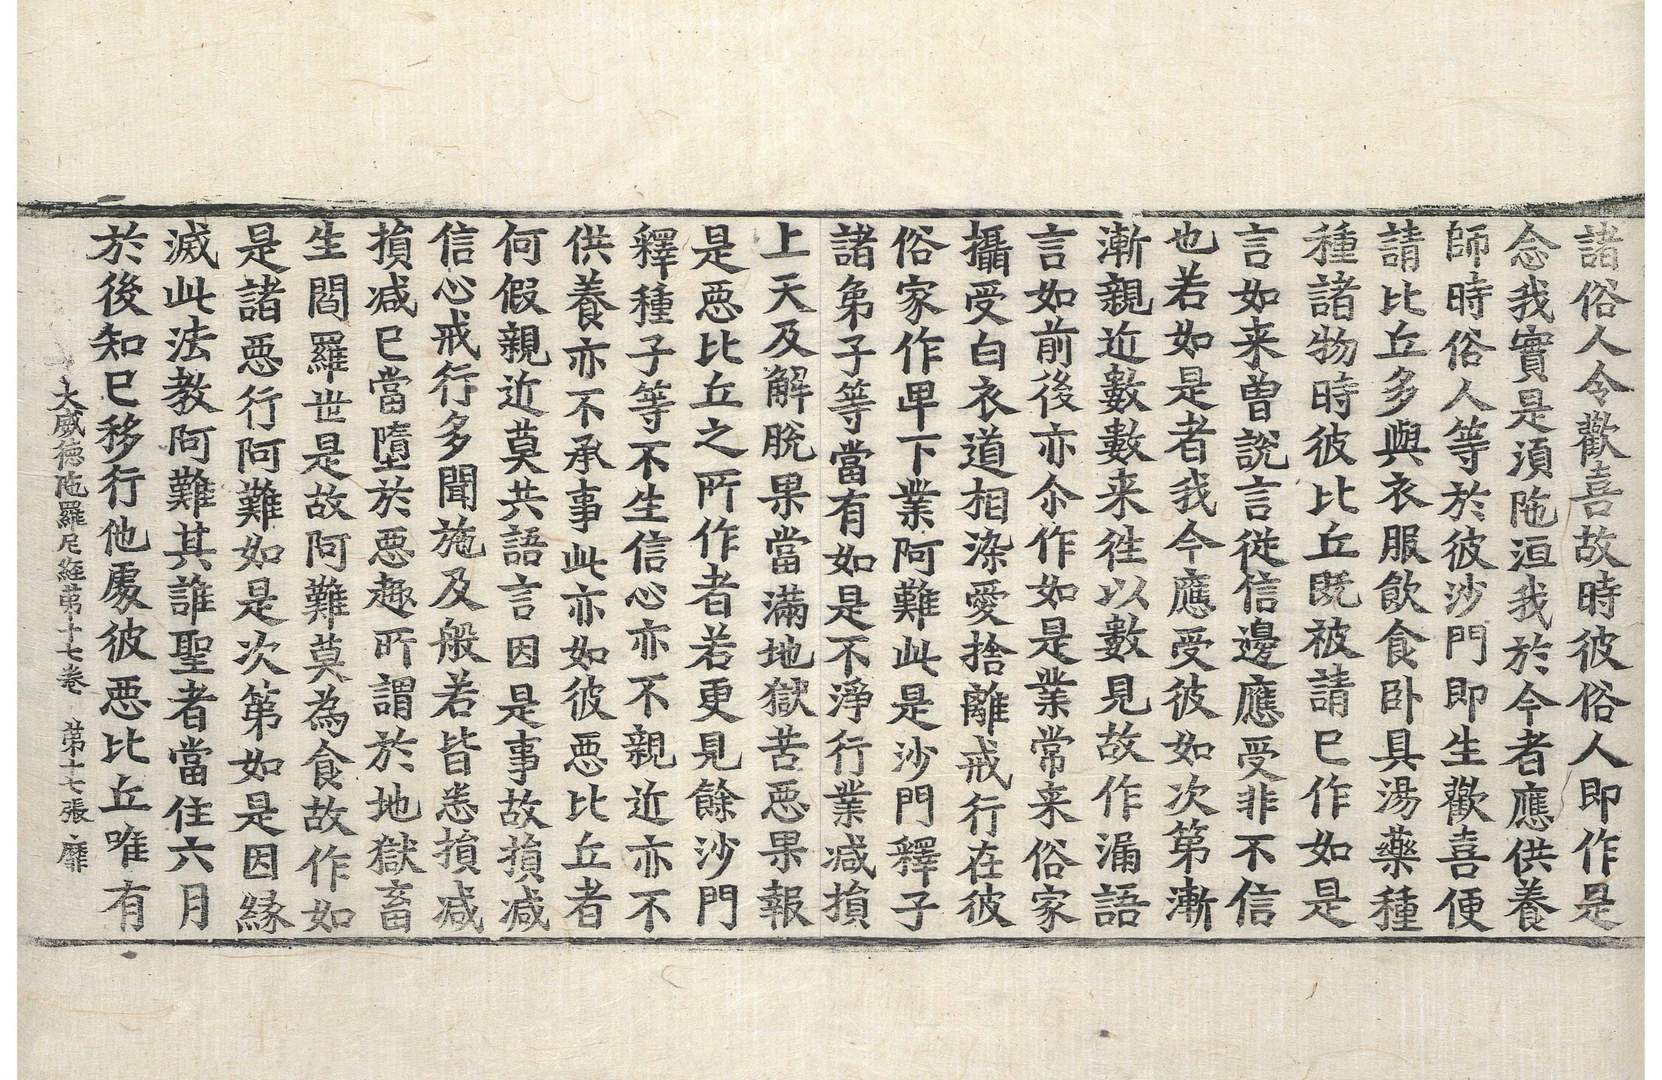 諸俗人令歡喜故時彼俗人即作是
念我實是湏陁洹我於今者應供養
師時俗人等於彼沙門即生歡喜便
請比丘多與衣服飲食卧具湯藥種
種諸物時彼比丘既被請已作如是
言如来曽說言従信邊應受非不信
也若如是者我今應受彼如次第漸
漸親近數數来徃以數見故作漏語
言如前後亦尒作如是業常来俗家
攝受白衣道相染愛捨離戒行在彼
俗家作卑下業阿難此是沙門釋子
諸弟子等當有如是不淨行業减損
上天及解脫果當滿地獄苦惡果報
是惡比丘之所作者若更見餘沙門
釋種子等不生信心亦不親近亦不
供養亦不承事此亦如彼惡比丘者
何假親近莫共語言因是事故損减
信心戒行多聞施及般若皆悉損减
損减已當墮於惡趣所謂於地獄畜
生閻羅世是故阿難莫為食故作如
是諸惡行阿難如是次第如是因緣
滅此法教阿難其誰聖者當住六月
於後知已移行他處彼惡比丘唯有
大威徳陁羅尼経苐十七卷 苐十七張 靡